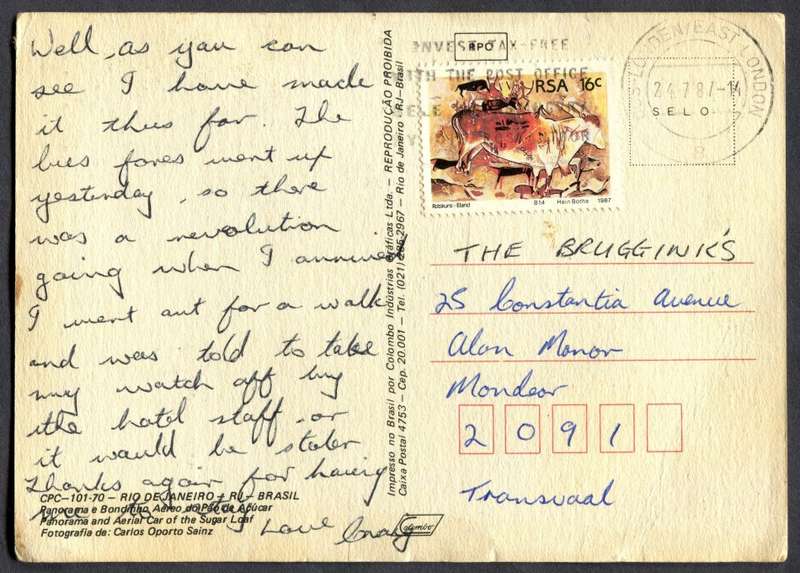 Well, as you can
see I have made
it thus far. The
bus fares went up
yesterday, so there
was a revolution
going when I arrived
I went out for a walk
and was told to take
my watch off by
the hotel staff or
it would be stolen
Thanks again for having
me
Love Craig
CPC-101-70 - RIO DE JANEIRO - RJ - BRASIL
Panorama e Bondinho Aéreo do Pão de Açúcar
Panorama and Aerial Car of the Sugar Loaf
Fotografia de: Carlos Oporto Sainz
Impresso no Brasil por Colombo Indústrias Gráficas Ltda. - REPRODUÇÃO PROIBIDA
Caixa Postal 4753 - Cep. 20.001 - Tel. (021) 286.2967 - Rio de Janeiro - RJ - Brasil
Colombo
INVEST TAX-FREE
WITH THE POST OFFICE
RPO
RSA 16c
Rotskuns - Eland B14 Hein Botha 1987
LONDEN/EAST LONDON
24.7.87-14
SELO
THE BRUGGINK'S
25 Constantia Avenue
Alan Manor
Mondeor
2091
Transvaal